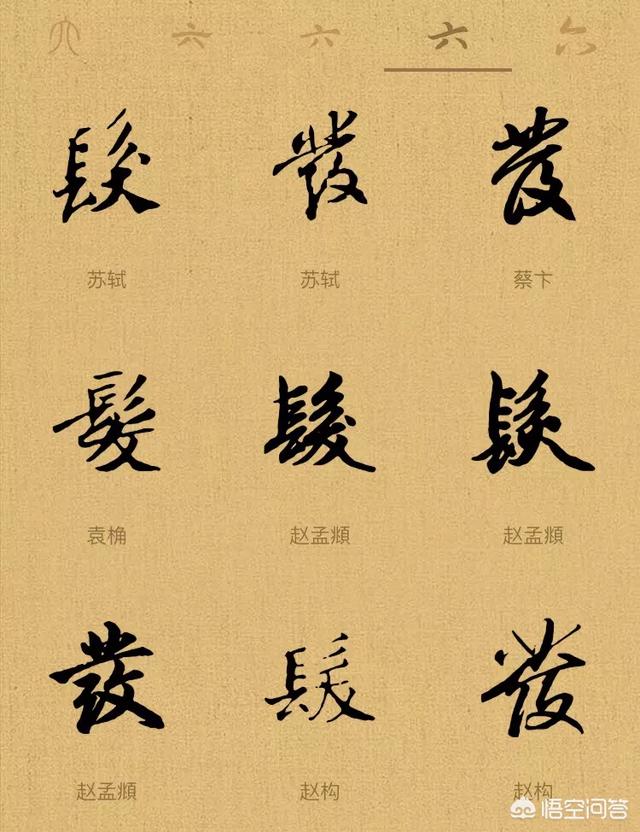 六 六 六 六 六
髮 發 發
苏轼 苏轼 蔡卞
髮 髮 髮
袁桷 赵孟頫 赵孟頫
發 髮 發
赵孟頫 赵构 赵构
悟空问答